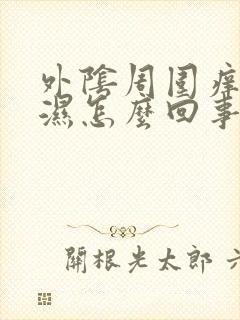 外陰周圍癢
濕怎麼回事
關根光太郎 六